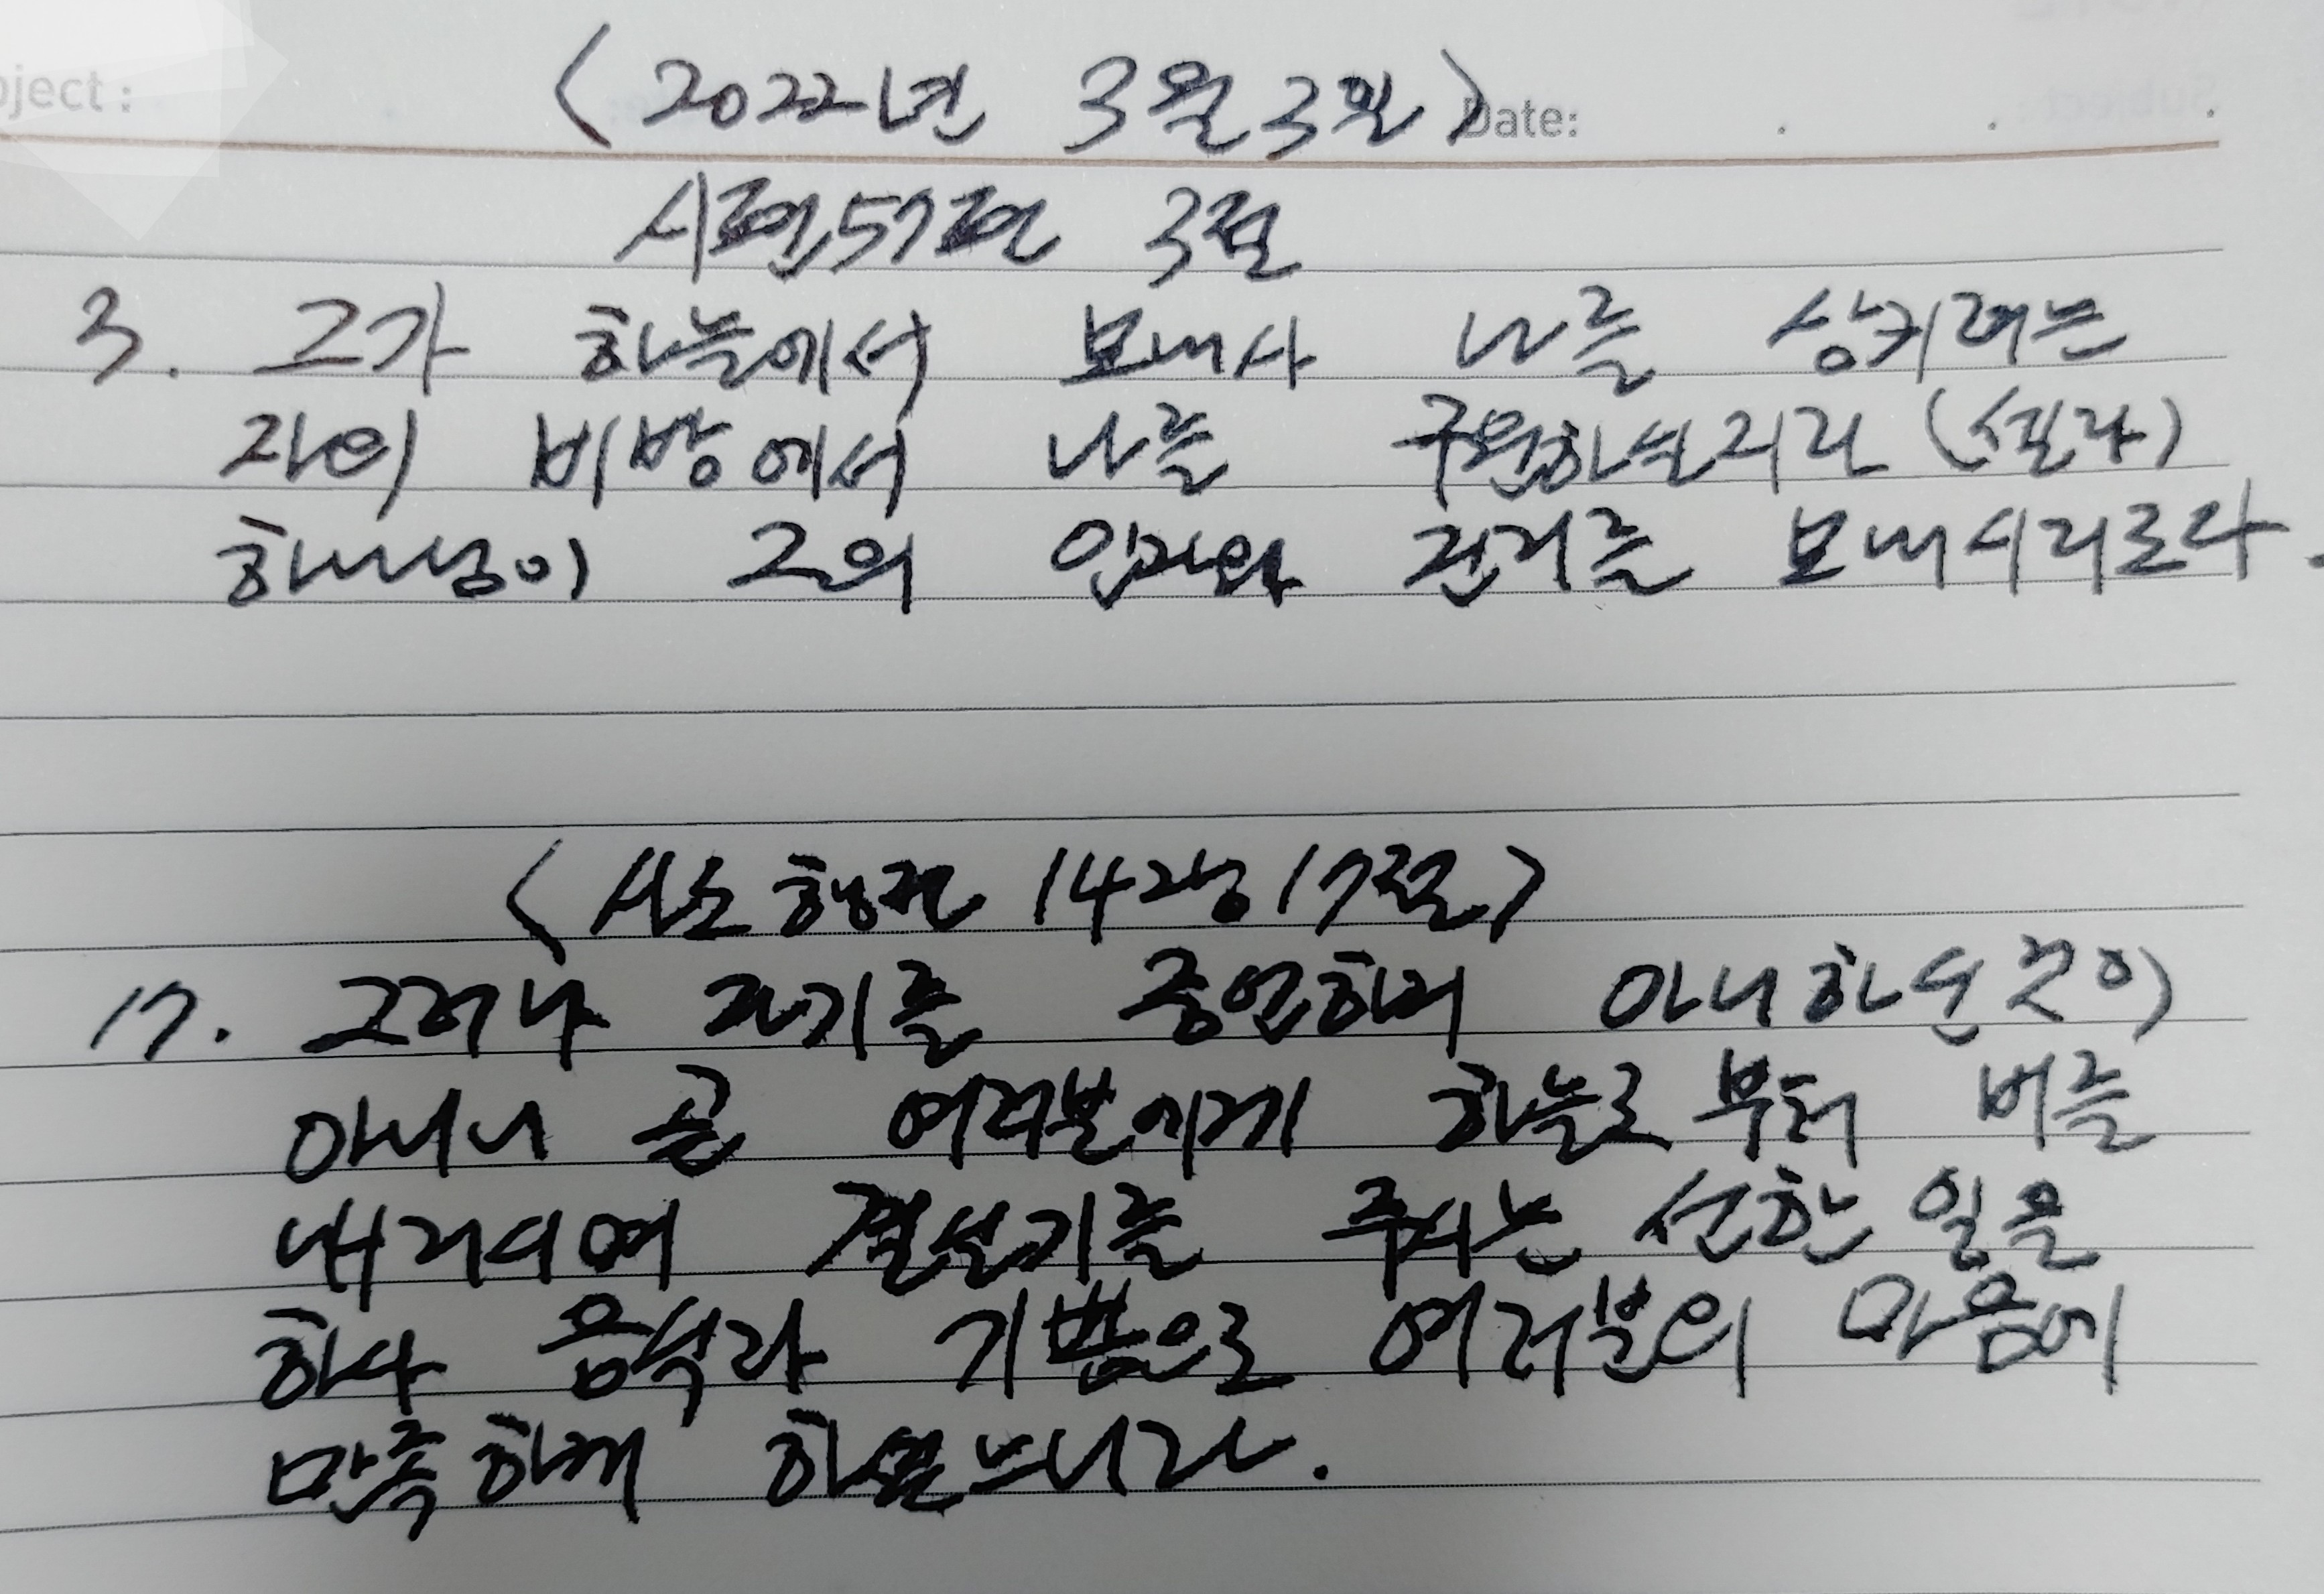 bject :
〈 2022년 3월 3일 〉 Date:
시편57편 3절
3. 그가 하늘에서 보내사 나를 삼키려는
자의 비방에서 나를 구원하실지라 (셀라)
하나님이 그의 인자와 진리를 보내시리로다.
〈사도행전 14장 17절〉
17. 그러나 자기를 증언하지 아니하신 것이
아니니 곧 여러분에게 하늘로부터 비를
내리시며 결실기를 주시는 선한 일을
하사 음식과 기쁨으로 여러분의 마음에
만족하게 하셨느니라.